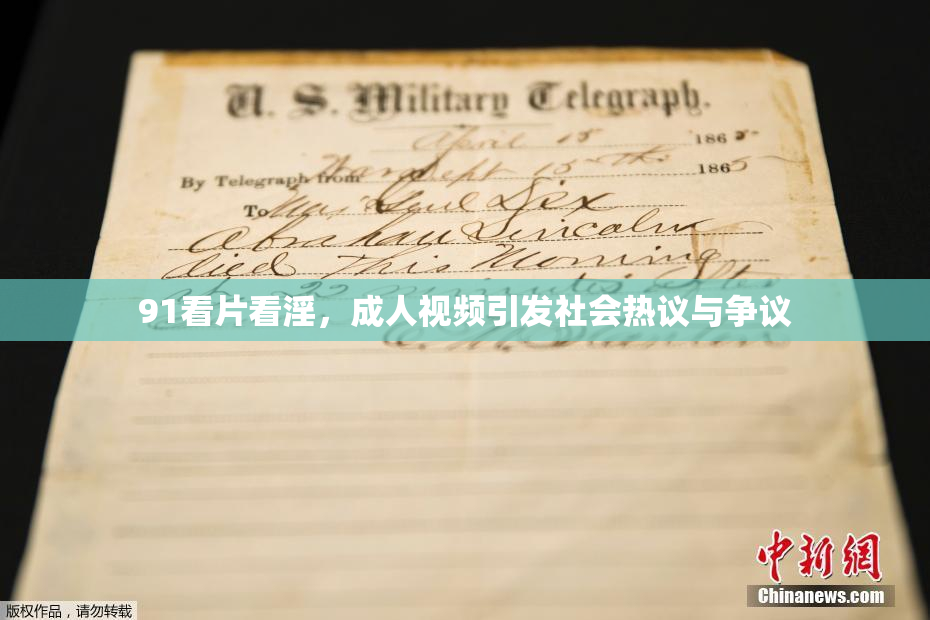 U. S. Military Telegraph.
April 15 1865
By Telegraph from War Dept 15th 1865
To Maj Genl Dix
Abraham Lincoln
died This Morning
at 22 minutes after
91看片看淫，成人视频引发社会热议与争议
E. M. Stanton
中新网
Chinanews.com
版权作品，请勿转载